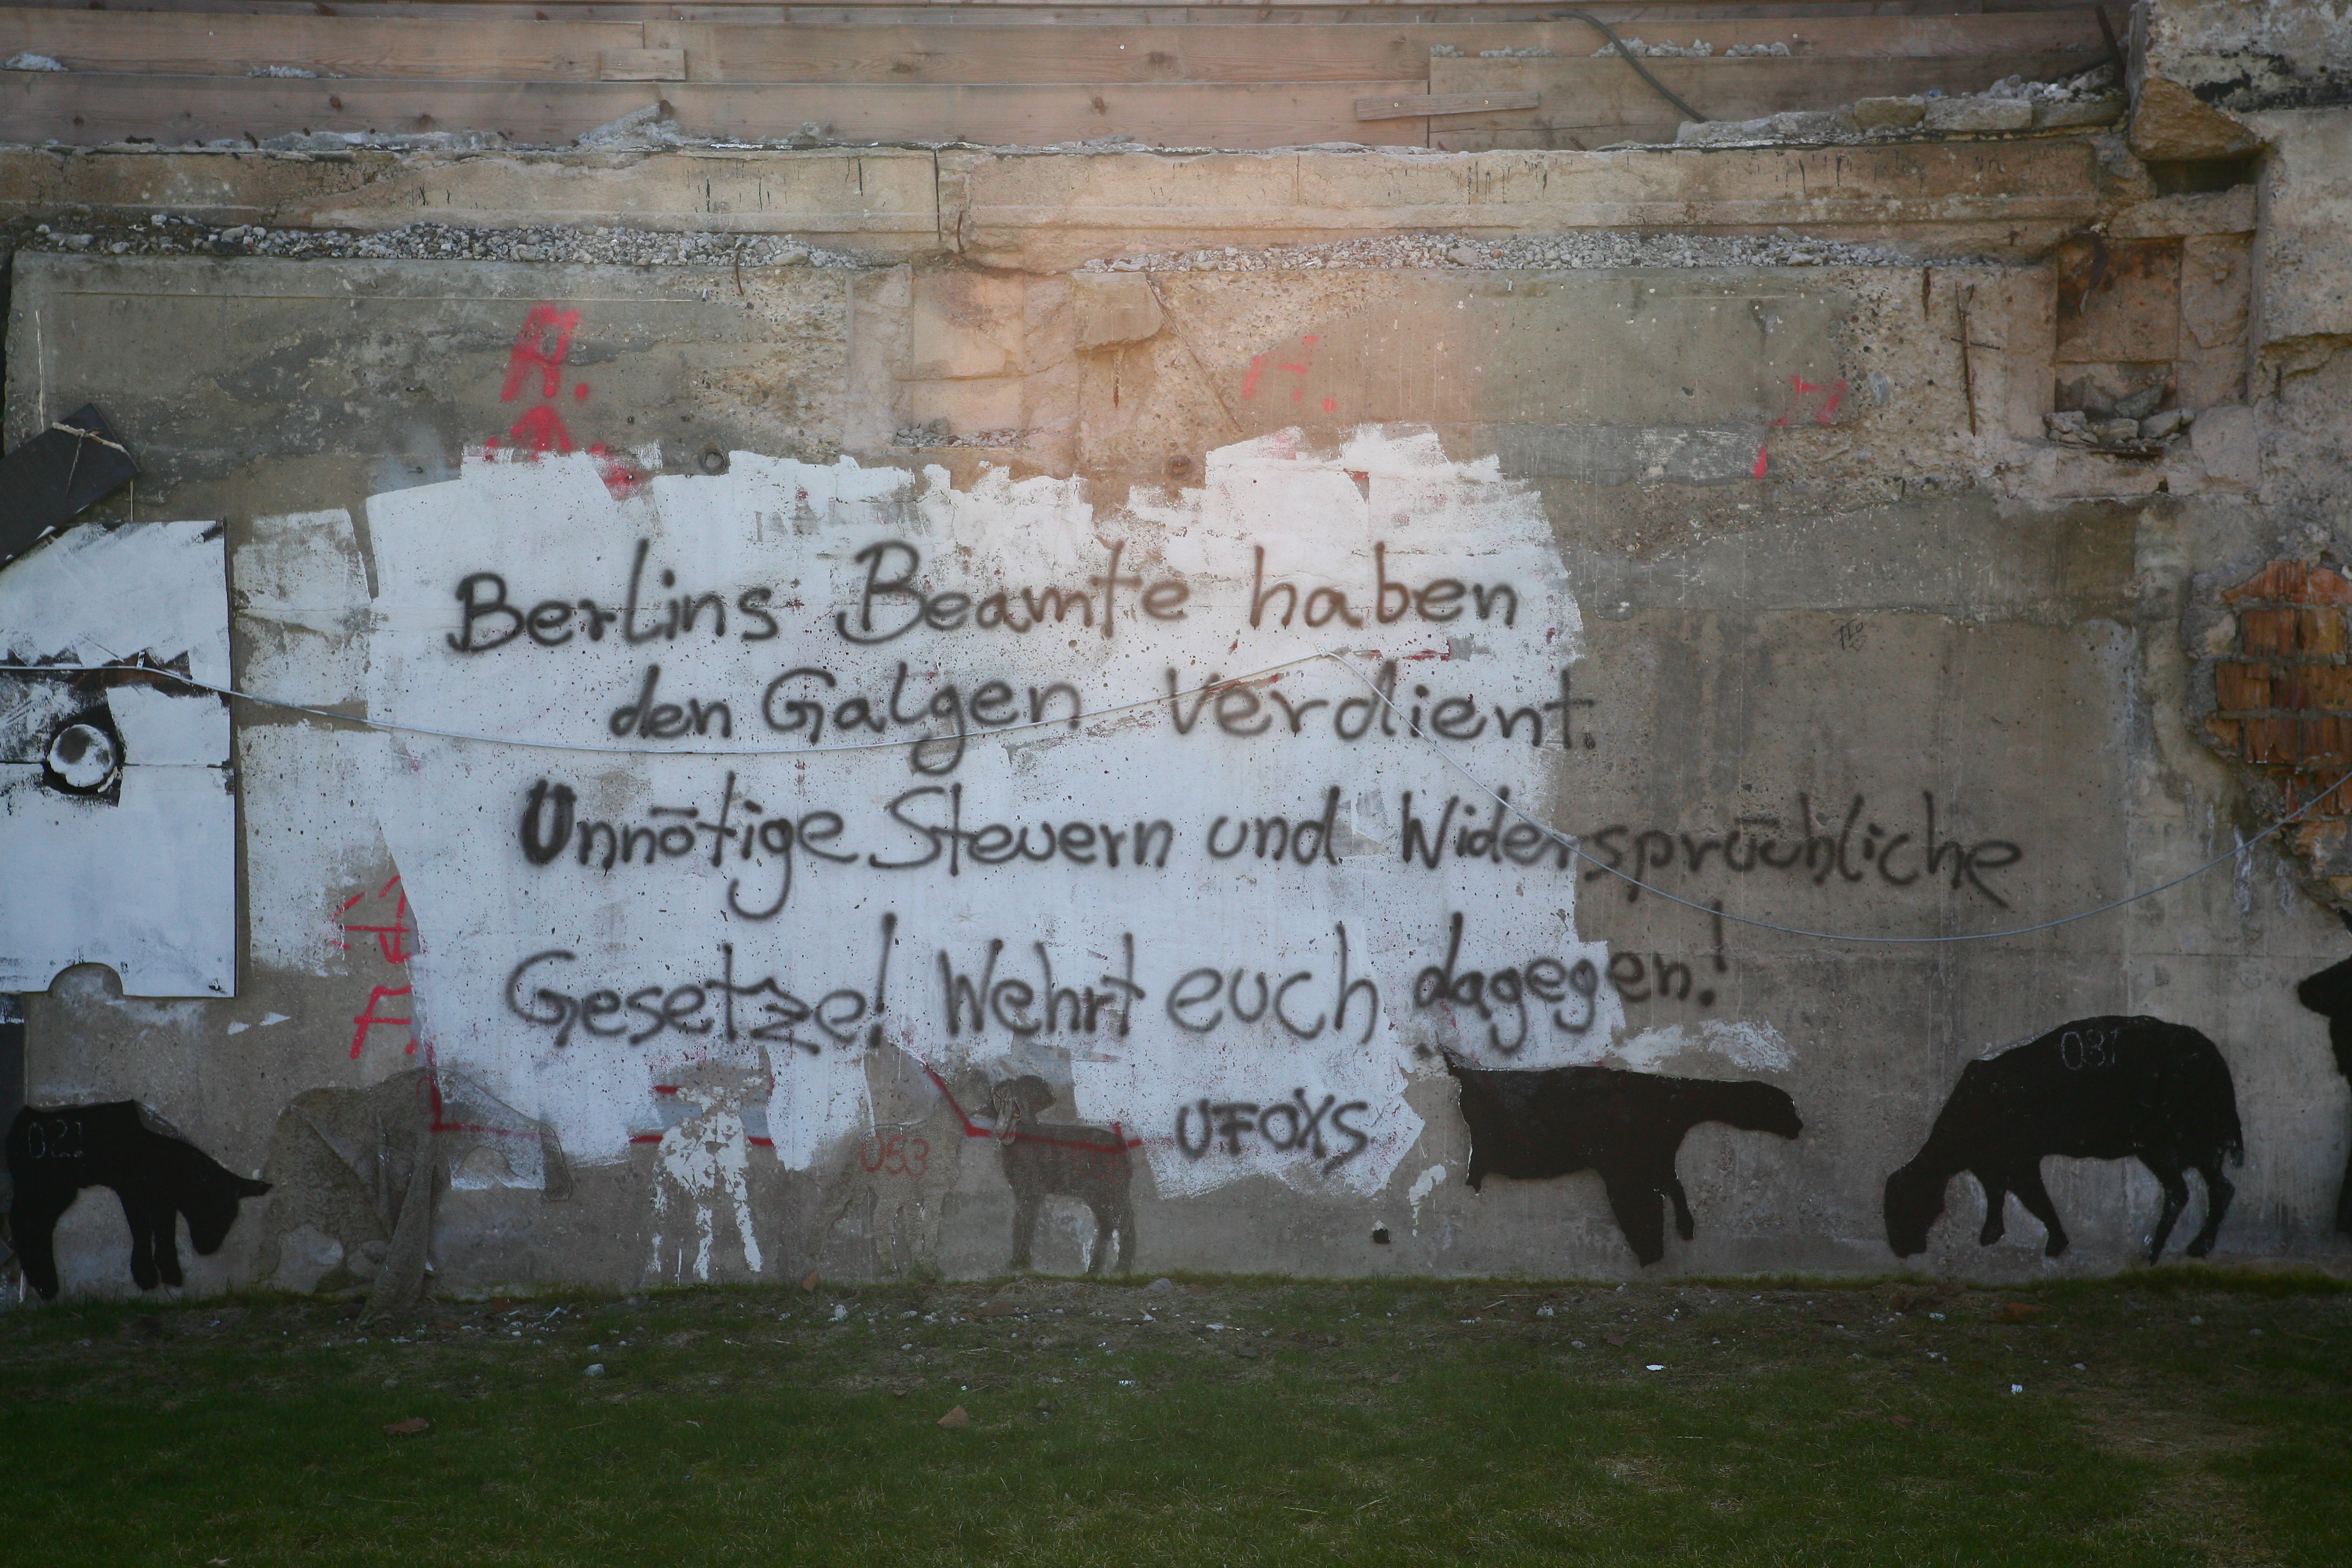 A.
Berlins Beamte haben
den Galgen verdient.
Unnōtige Steuern und Widersprūchliche
Gesetze! Wehrt euch dagegen!
UFOXS
021
053
037